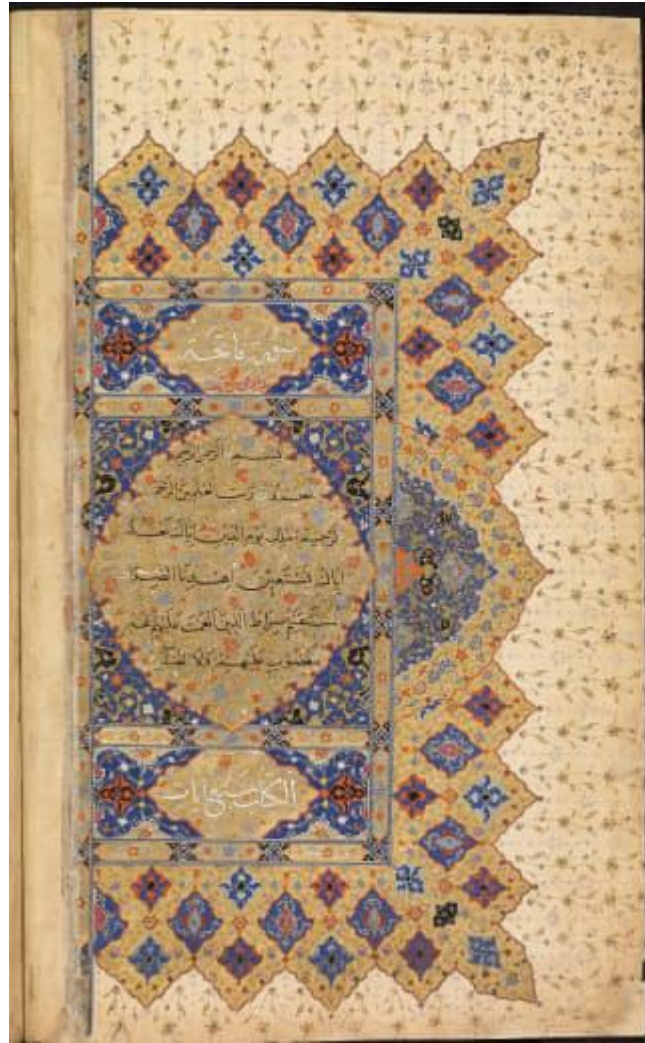 سورة فاتحة
بسم الله الرحمن الرحيم
الحمد لله رب العلمين الرحمن
الرحيم ملك يوم الدين اياك نعبد و
اياك نستعين اهدنا الصراط
المستقيم صراط الذين انعمت عليهم غير
المغضوب عليهم ولا الضالين
الكتاب سبع ايات